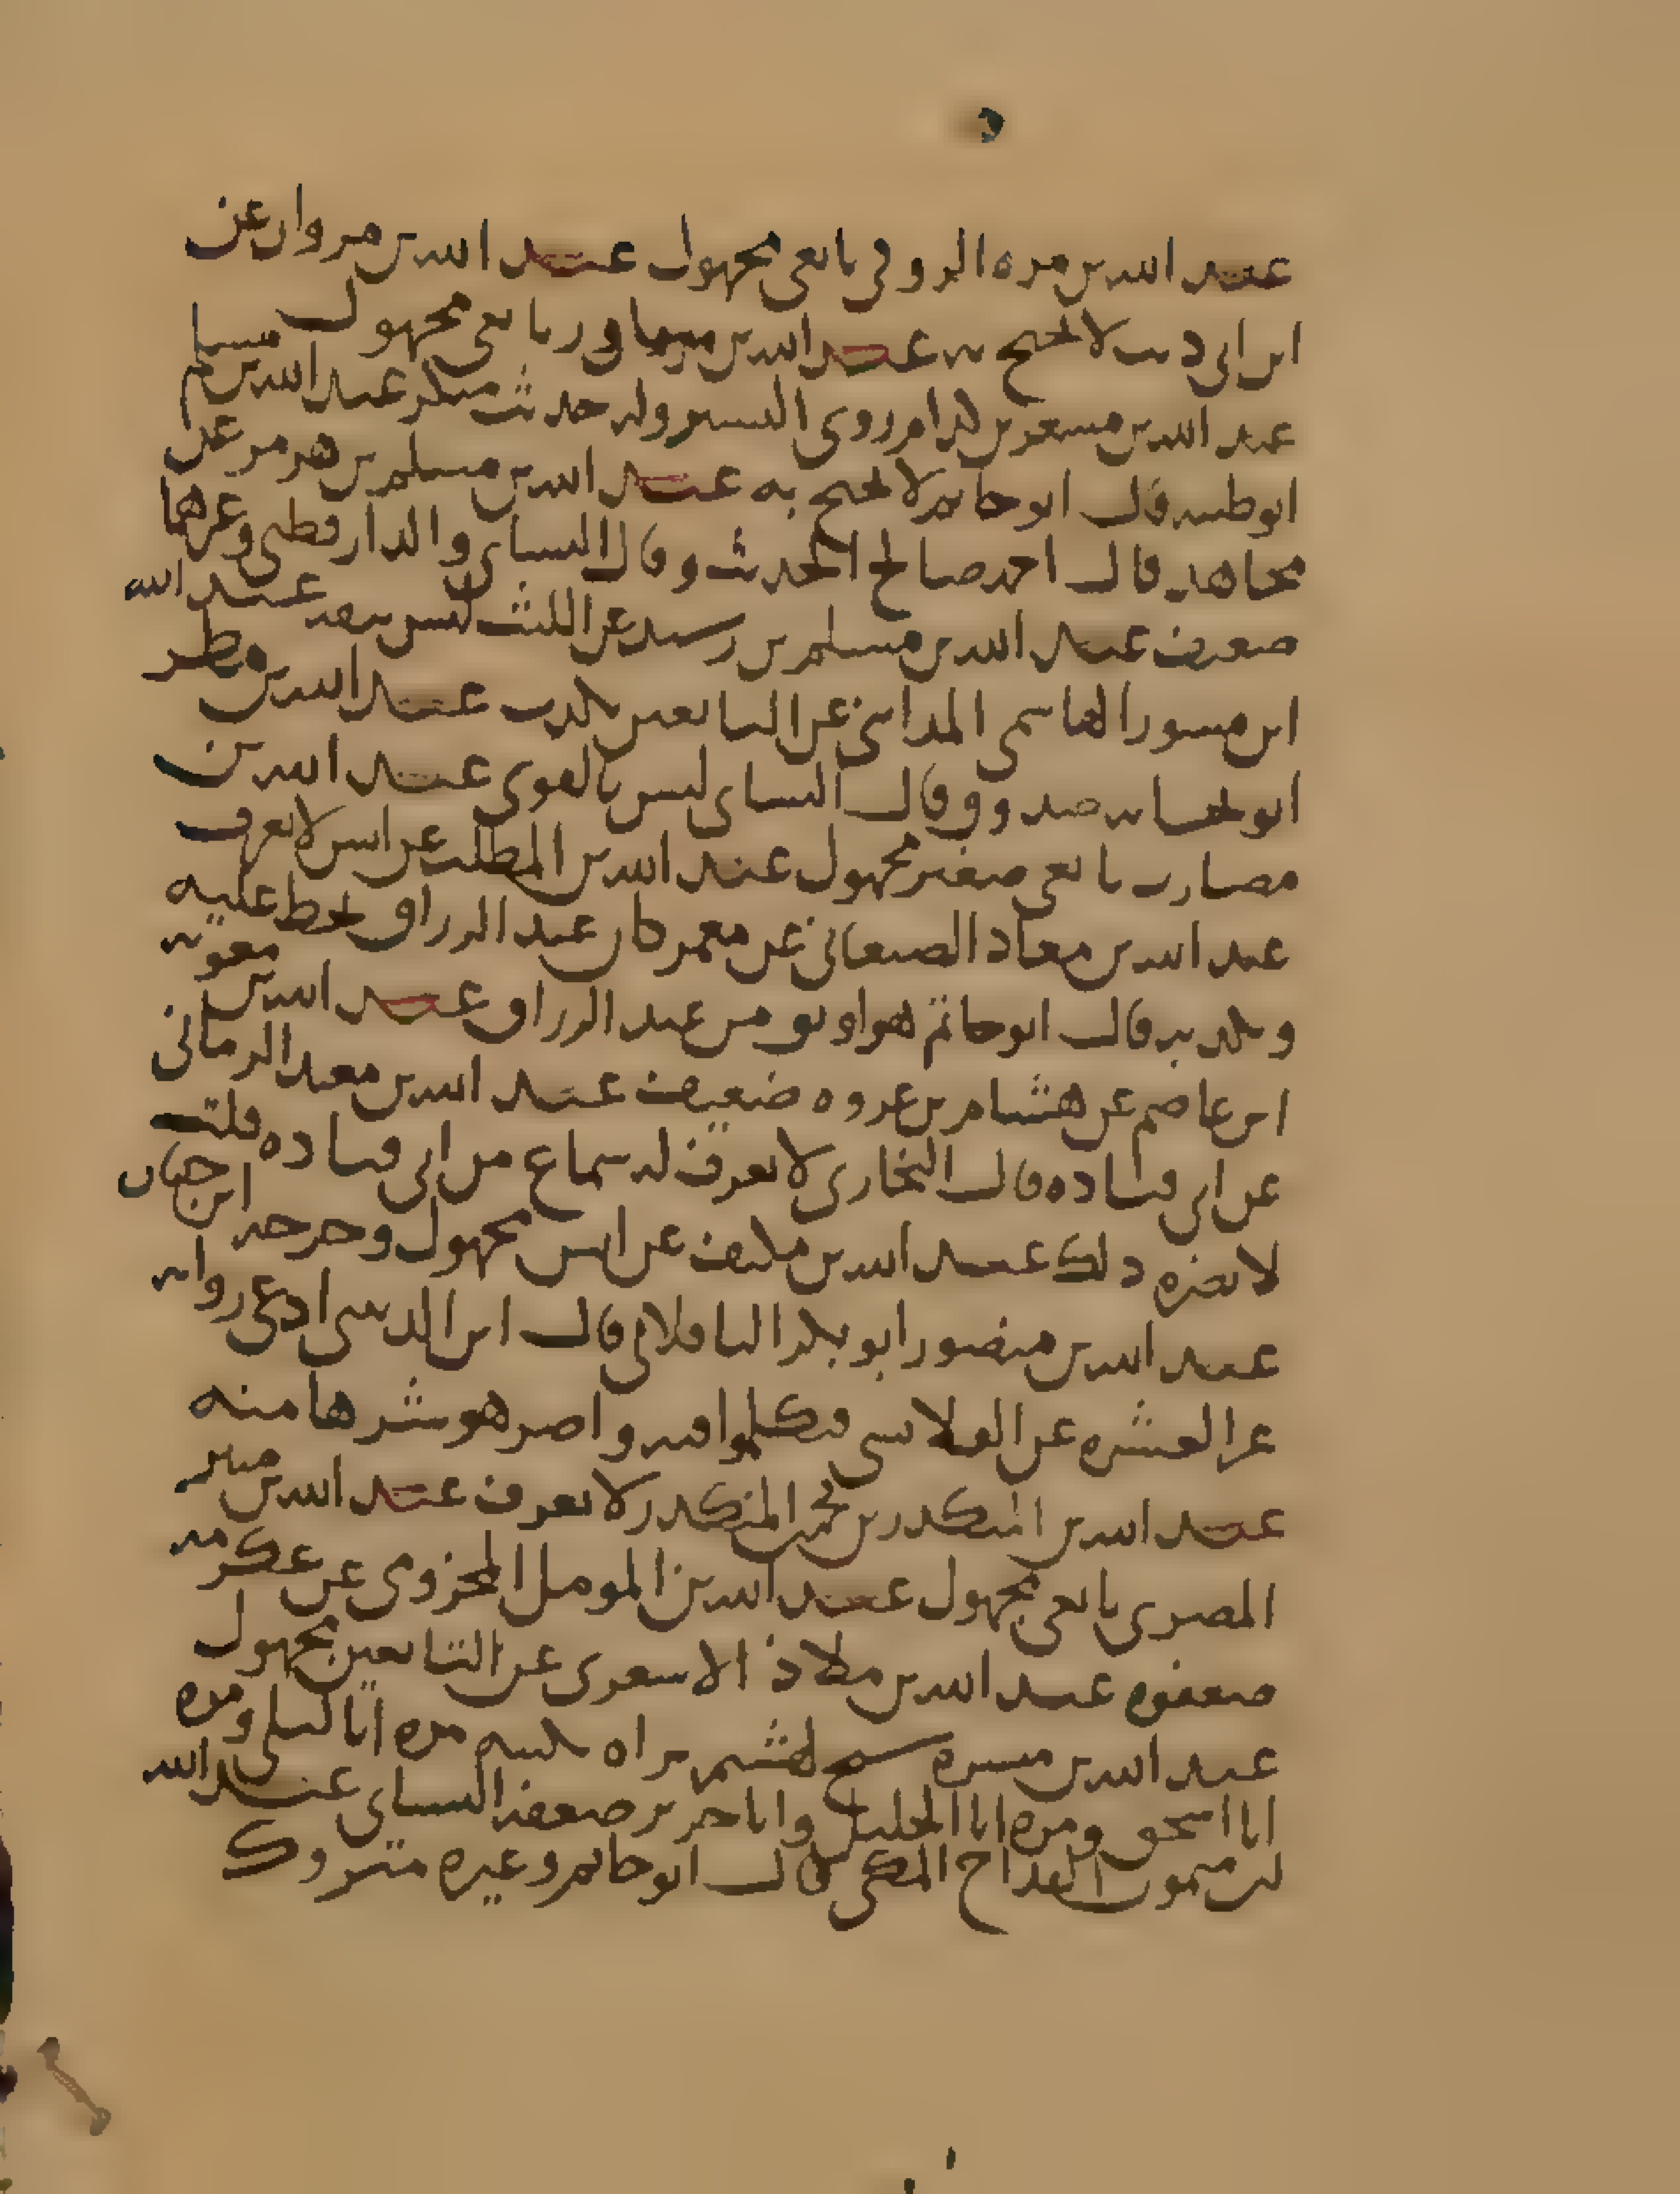 عبد الله بن مره الزوفي تابعي مجهول عبد الله بن مروان عن
ابن ابي ذيب لا يحتج به عبد الله بن مساور تابعي مجهول
عبد الله بن مسعر بن كدام روى اليسير وله حديث منكر عبد الله بن مسلم
ابو طيبه قال ابو حاتم لا يحتج به عبد الله بن مسلم بن هرمز عن
مجاهد قال احمد صالح الحديث وقال النساي والدارقطني وغيرهما
ضعيف عبد الله بن مسلم بن رشيد عن الليث ليس بثقه عبد الله
ابن مسور الهاشمي المدايني عن التابعين يكذب عبد الله بن مطر
ابو ريحانه صدوق وقال النساي ليس بالقوي عبد الله بن
مضارب تابعي صغير مجهول عبد الله بن المطلب عن انس لا يعرف
عبد الله بن معاذ الصنعاني عن معمر كان عبد الرزاق يحط عليه
ويكذبه قال ابو حاتم هو اوثق من عبد الرزاق عبد الله بن معويه
ابن عاصم عن هشام بن عروه ضعيف عبد الله بن معبد الزماني
عن ابي قتاده قال البخاري لا يعرف له سماع من ابي قتاده قلت
لا يضره ذلك عبد الله بن ملاذ عن انس مجهول وجرحه ابن حبان
عبد الله بن منصور ابو بكر الباقلاني قال ابن الدبيثي ادعى روايه
عن العشره عن القلانسي فتكلموا فيه واصر هو شرها منه
عبد الله بن المنكدر بن محمد بن المنكدر لا يعرف عبد الله بن منير
المصري تابعي مجهول عبد الله بن المومل المخزومي عن عكرمه
ضعفوه عبد الله بن ملاذ الاشعري عن التابعين مجهول
عبد الله بن ميسره شيخ لهشيم تراه يكنيه مره ابا ليلى ومره
ابا اسحق ومره ابا الجليل وابا جرير ضعفه النساي عبد الله
بن ميمون القداح المكي قال ابو حاتم وغيره متروك